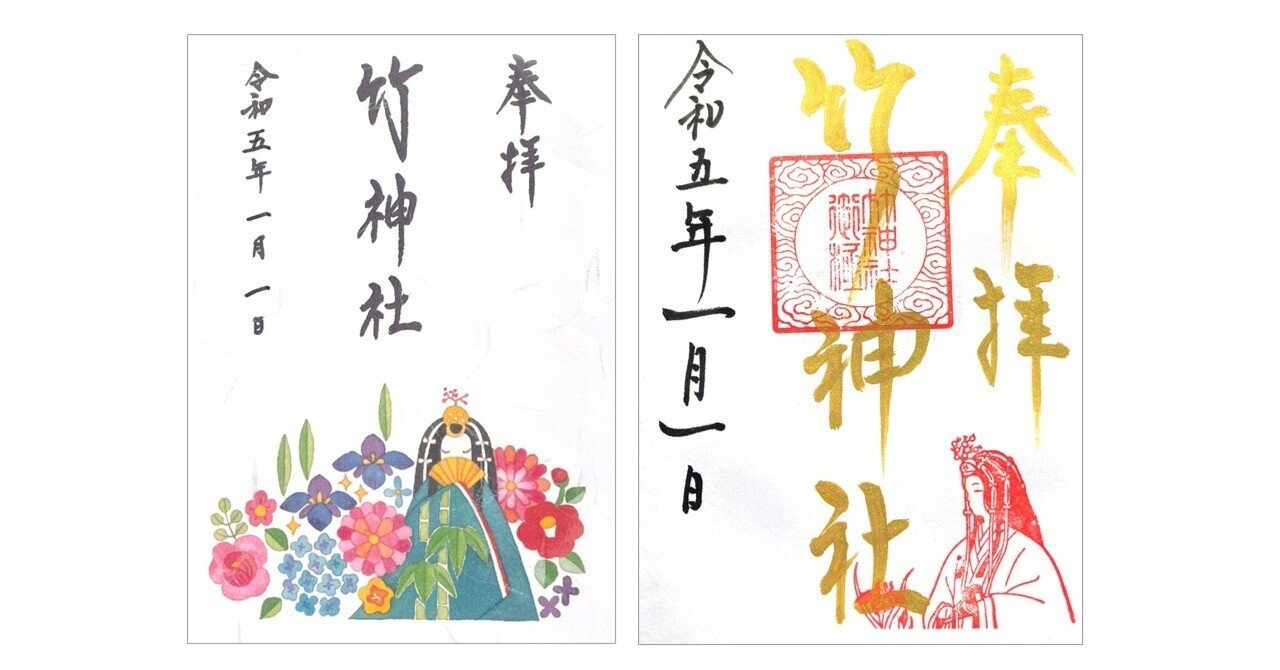 奉拝
竹神社
令和五年一月一日
奉拝
竹神社
竹神社
令和五年一月一日